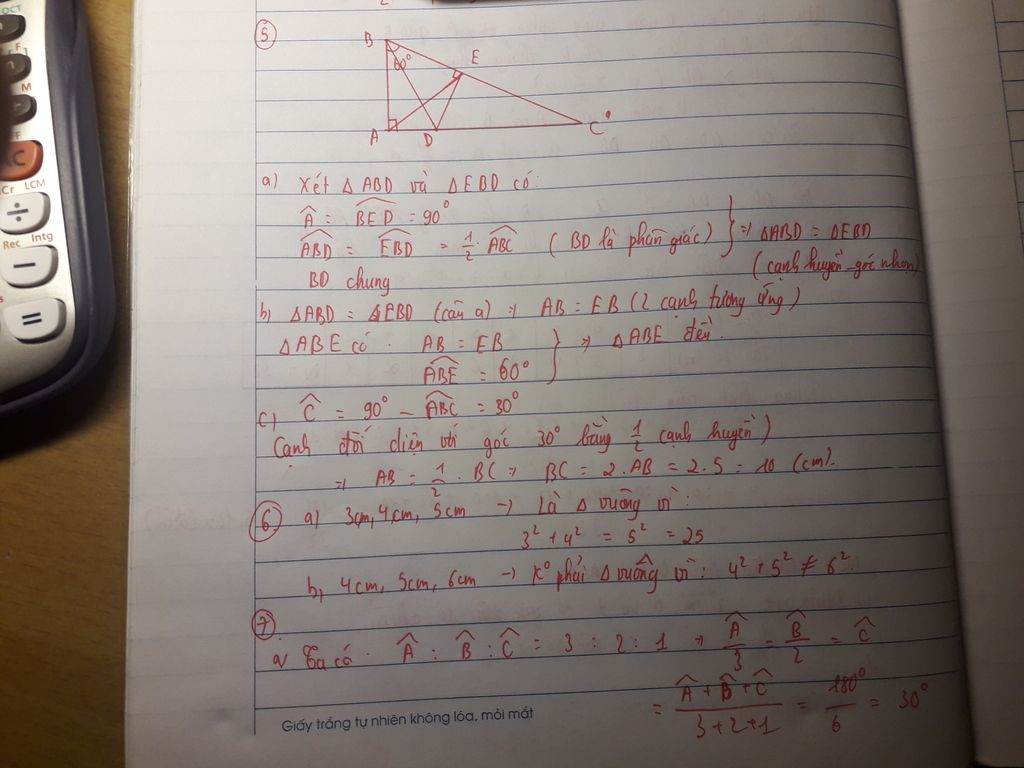 OCT
F
M
FF
AC
Cr LCM
÷
Rec Intg
−
=
5
B
60°
E
A
D
C
a) Xét Δ ABD và Δ EBD có:
Â = BED̂ = 90°
ABD̂ = EBD̂ = 1/2 ABĈ (BD là phân giác) } => ΔABD = ΔEBD
BD chung (cạnh huyền - góc nhọn)
b) ΔABD = ΔEBD (câu a) => AB = EB (2 cạnh tương ứng)
ΔABE có: AB = EB } => ΔABE đều.
ABÊ = 60°
c) Ĉ = 90° - ABĈ = 30°
Cạnh đối diện với góc 30° bằng 1/2 cạnh huyền)
=> AB = 1/2 . BC => BC = 2.AB = 2.5 = 10 (cm).
6 a) 3cm, 4cm, 5cm → Là Δ vuông vì:
3² + 4² = 5² = 25
b, 4cm, 5cm, 6cm → K° phải Δ vuông vì: 4² + 5² ≠ 6²
7
a, Ta có: Â : B̂ : Ĉ = 3 : 2 : 1 => Â/3 = B̂/2 = Ĉ
= (Â + B̂ + Ĉ)/(3+2+1) = 180°/6 = 30°
Giấy trắng tự nhiên không lóa, mỏi mắt